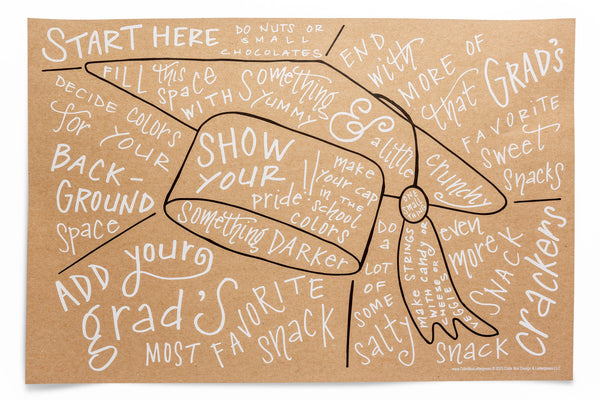 START HERE
DO NUTS OR
SMALL
CHOCOLATES
END
with
MORE OF
that GRAD'S
FAVORITE
sweet
SNACKS
FILL this
space
WITH something
YUMMY
& a little
crunchy
DECIDE COLORS
for YOUR
BACK-
GROUND
space
SHOW
YOUR
pride!!
make
your cap
IN THE
school
colors
something DARKER
ONE
small
ADD your
grad's
MOST FAVORITE
snack
DO
A
LOT
OF
SOME
salty
make STRINGS
WITH candy OR
CHEESE OR
VEGGIES
even
more
SNACK
snack
crackers